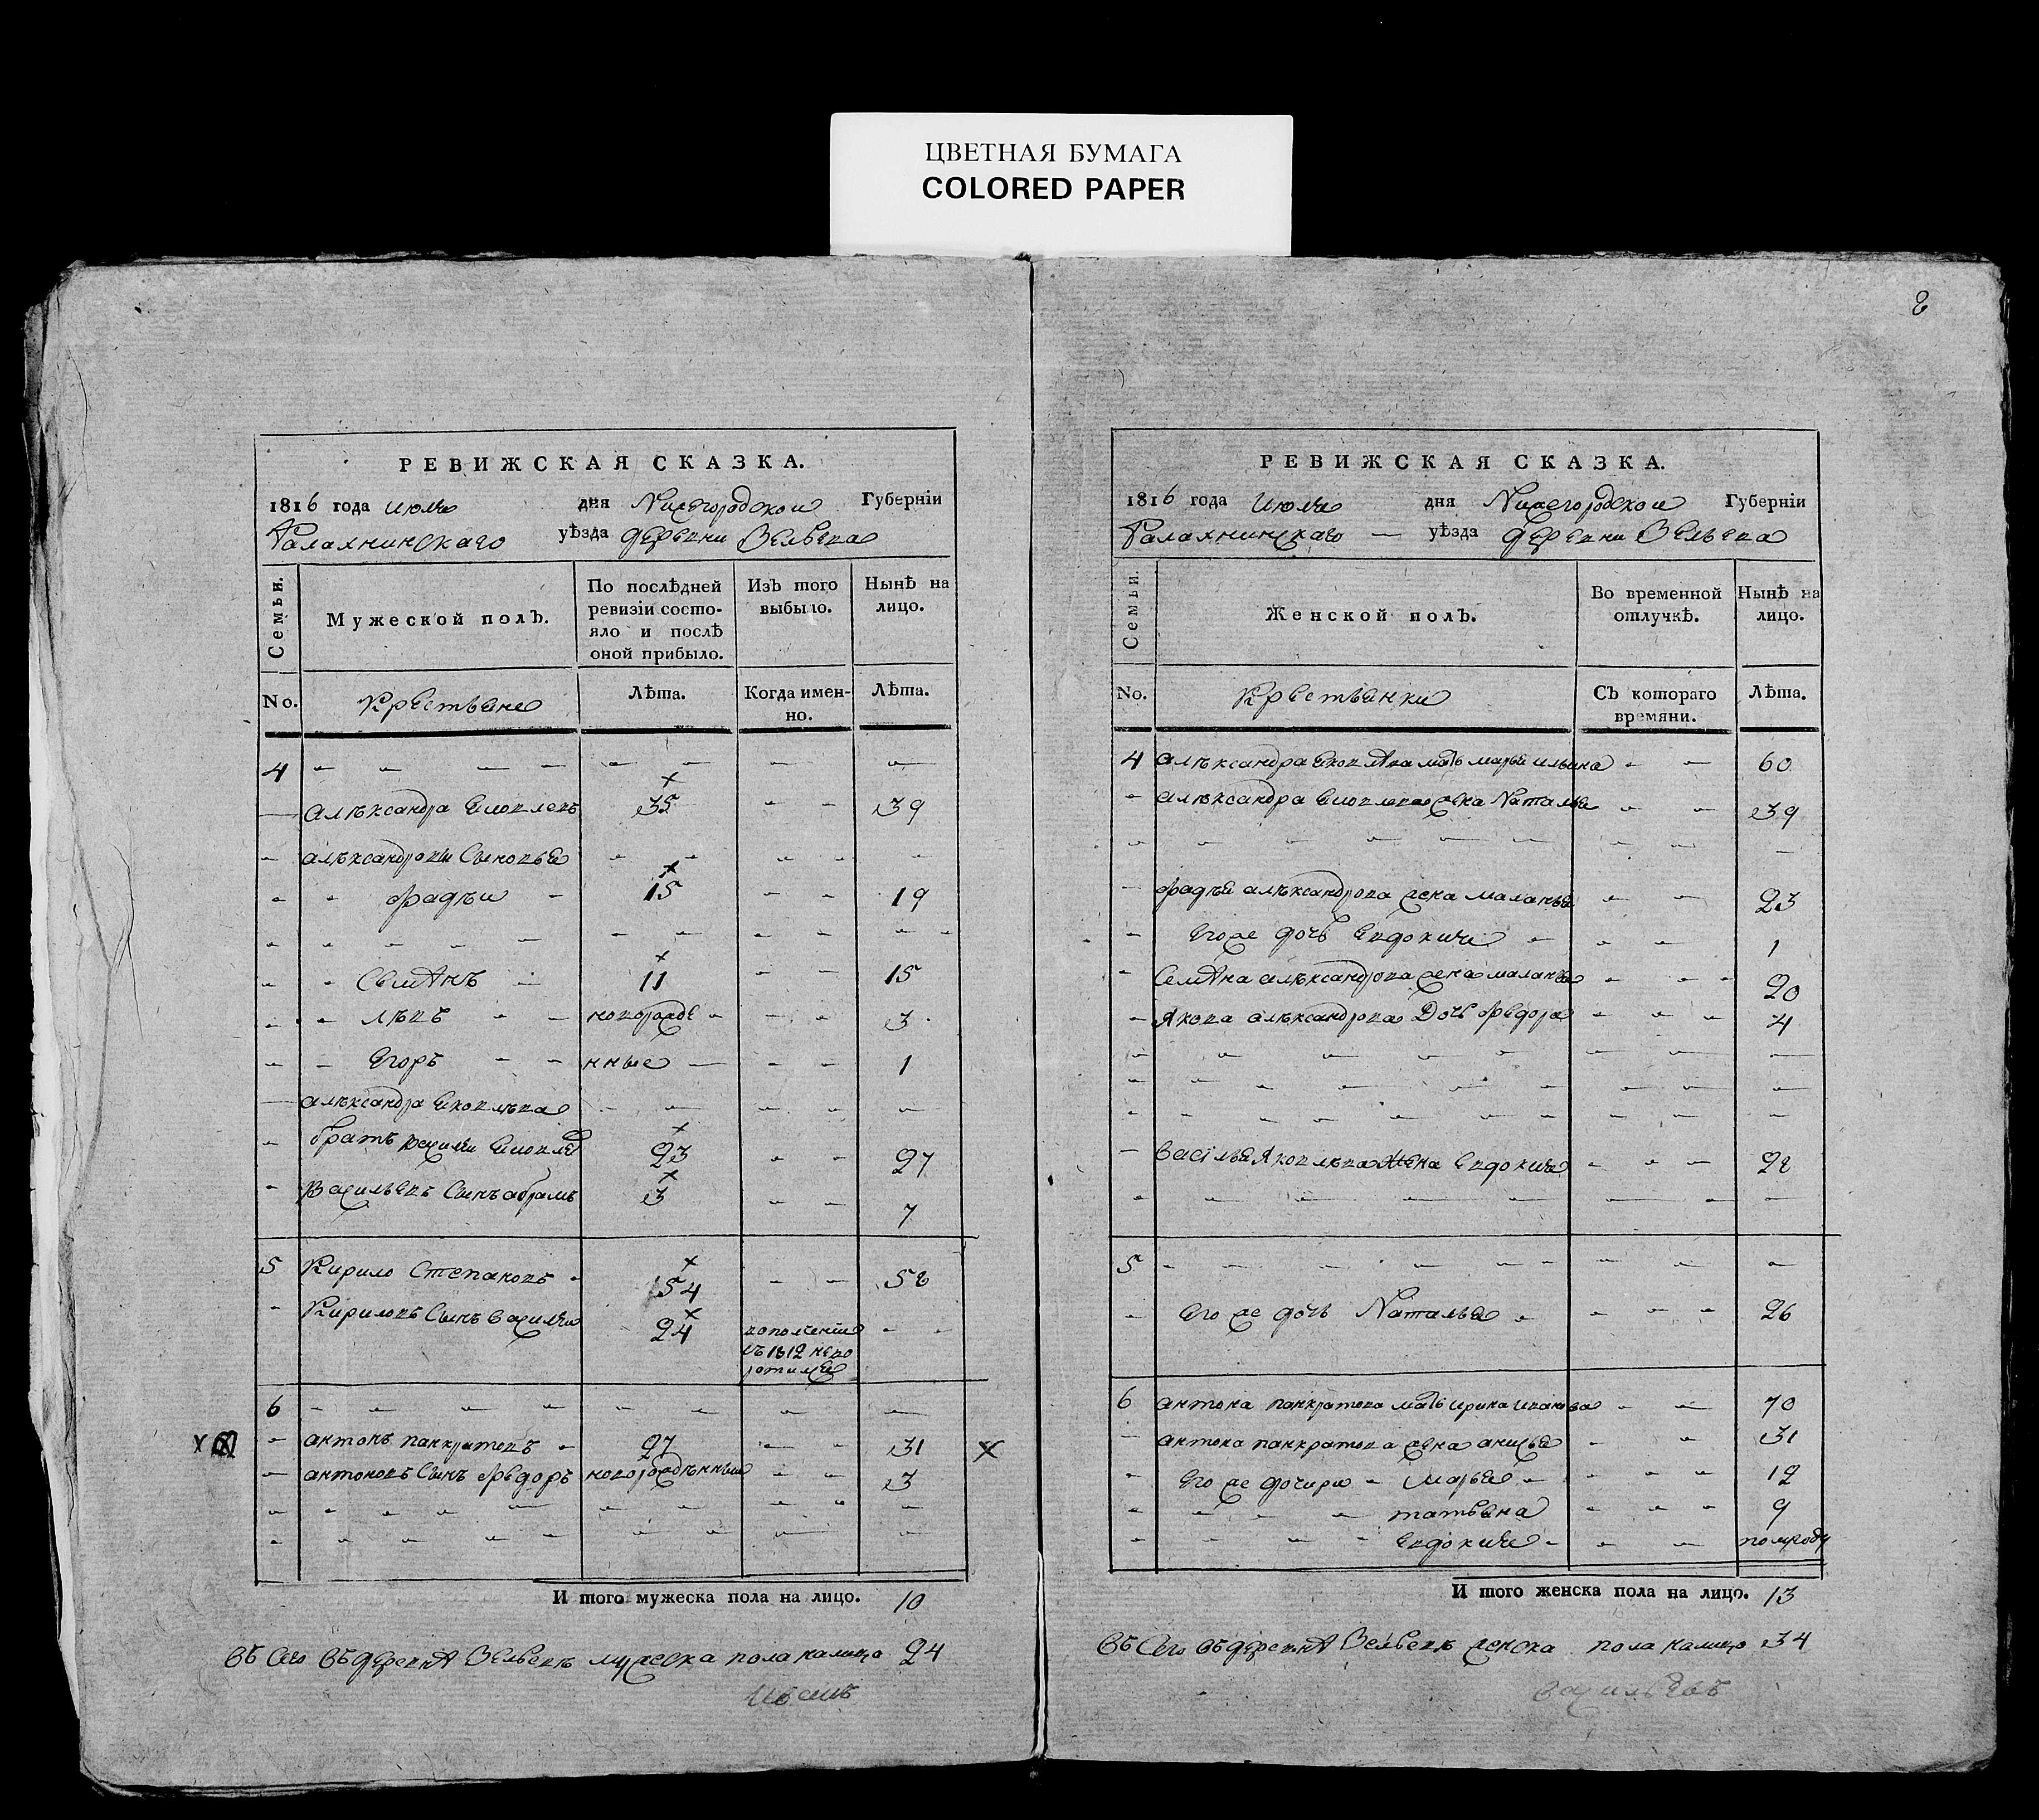 ЦВЕТНАЯ БУМАГА
COLORED PAPER
РЕВИЖСКАЯ СКАЗКА.
1816 года июля дня Нижегородской Губерніи
Балахнинскаго уѣзда деревни
Семьи.
Мужеской полъ.
По послѣдней ревизіи состояло и послѣ оной прибыло.
Изъ того выбыло.
Нынѣ на лицо.
No.
Крестьяне
Лѣта.
Когда именно.
Лѣта.
4
Александра 35 39
александровы Сыновья
фадѣи 15 19
Семѣнъ 11 15
лѣвъ новорожде 3
Егоръ нные 1
александра
братъ 23 27
Васильевъ Сынъ абрамъ 3 7
5 Кирило Степановъ 54 58
Кириловъ Сынъ василеи 24
въ 1812
6
антонъ панкратовъ 27 31
антоновъ Сынъ фѣдоръ новорожденныи 3
И того мужеска пола на лицо. 10
въ Сего въ деревнѣ мужеска пола налицо 24
Иванъ
8
РЕВИЖСКАЯ СКАЗКА.
1816 года Июля дня Нижегородской Губерніи
Балахнинскаго уѣзда деревни
Семьи.
Женской полъ.
Во временной отлучкѣ.
Нынѣ на лицо.
No.
Крестьянки
Съ котораго времяни.
Лѣта.
4 александра мать марья ильина 60
александра жена Наталья 39
фадѣя александрова жена маланья 23
Его же дочь Евдокия 1
Семѣна александрова жена маланья 20
Якова александрова Дочь 4
василья Яковлѣва жена Евдокия 28
5
Его же дочь Наталья 26
6 антона панкратова мать ирина иванова 70
антона панкратова жена анисья 31
Его же дочири марья 12
татьяна 9
Евдокия полгоду
И того женска пола на лицо. 13
въ Сего въ деревнѣ женска пола налицо 34
васильевъ